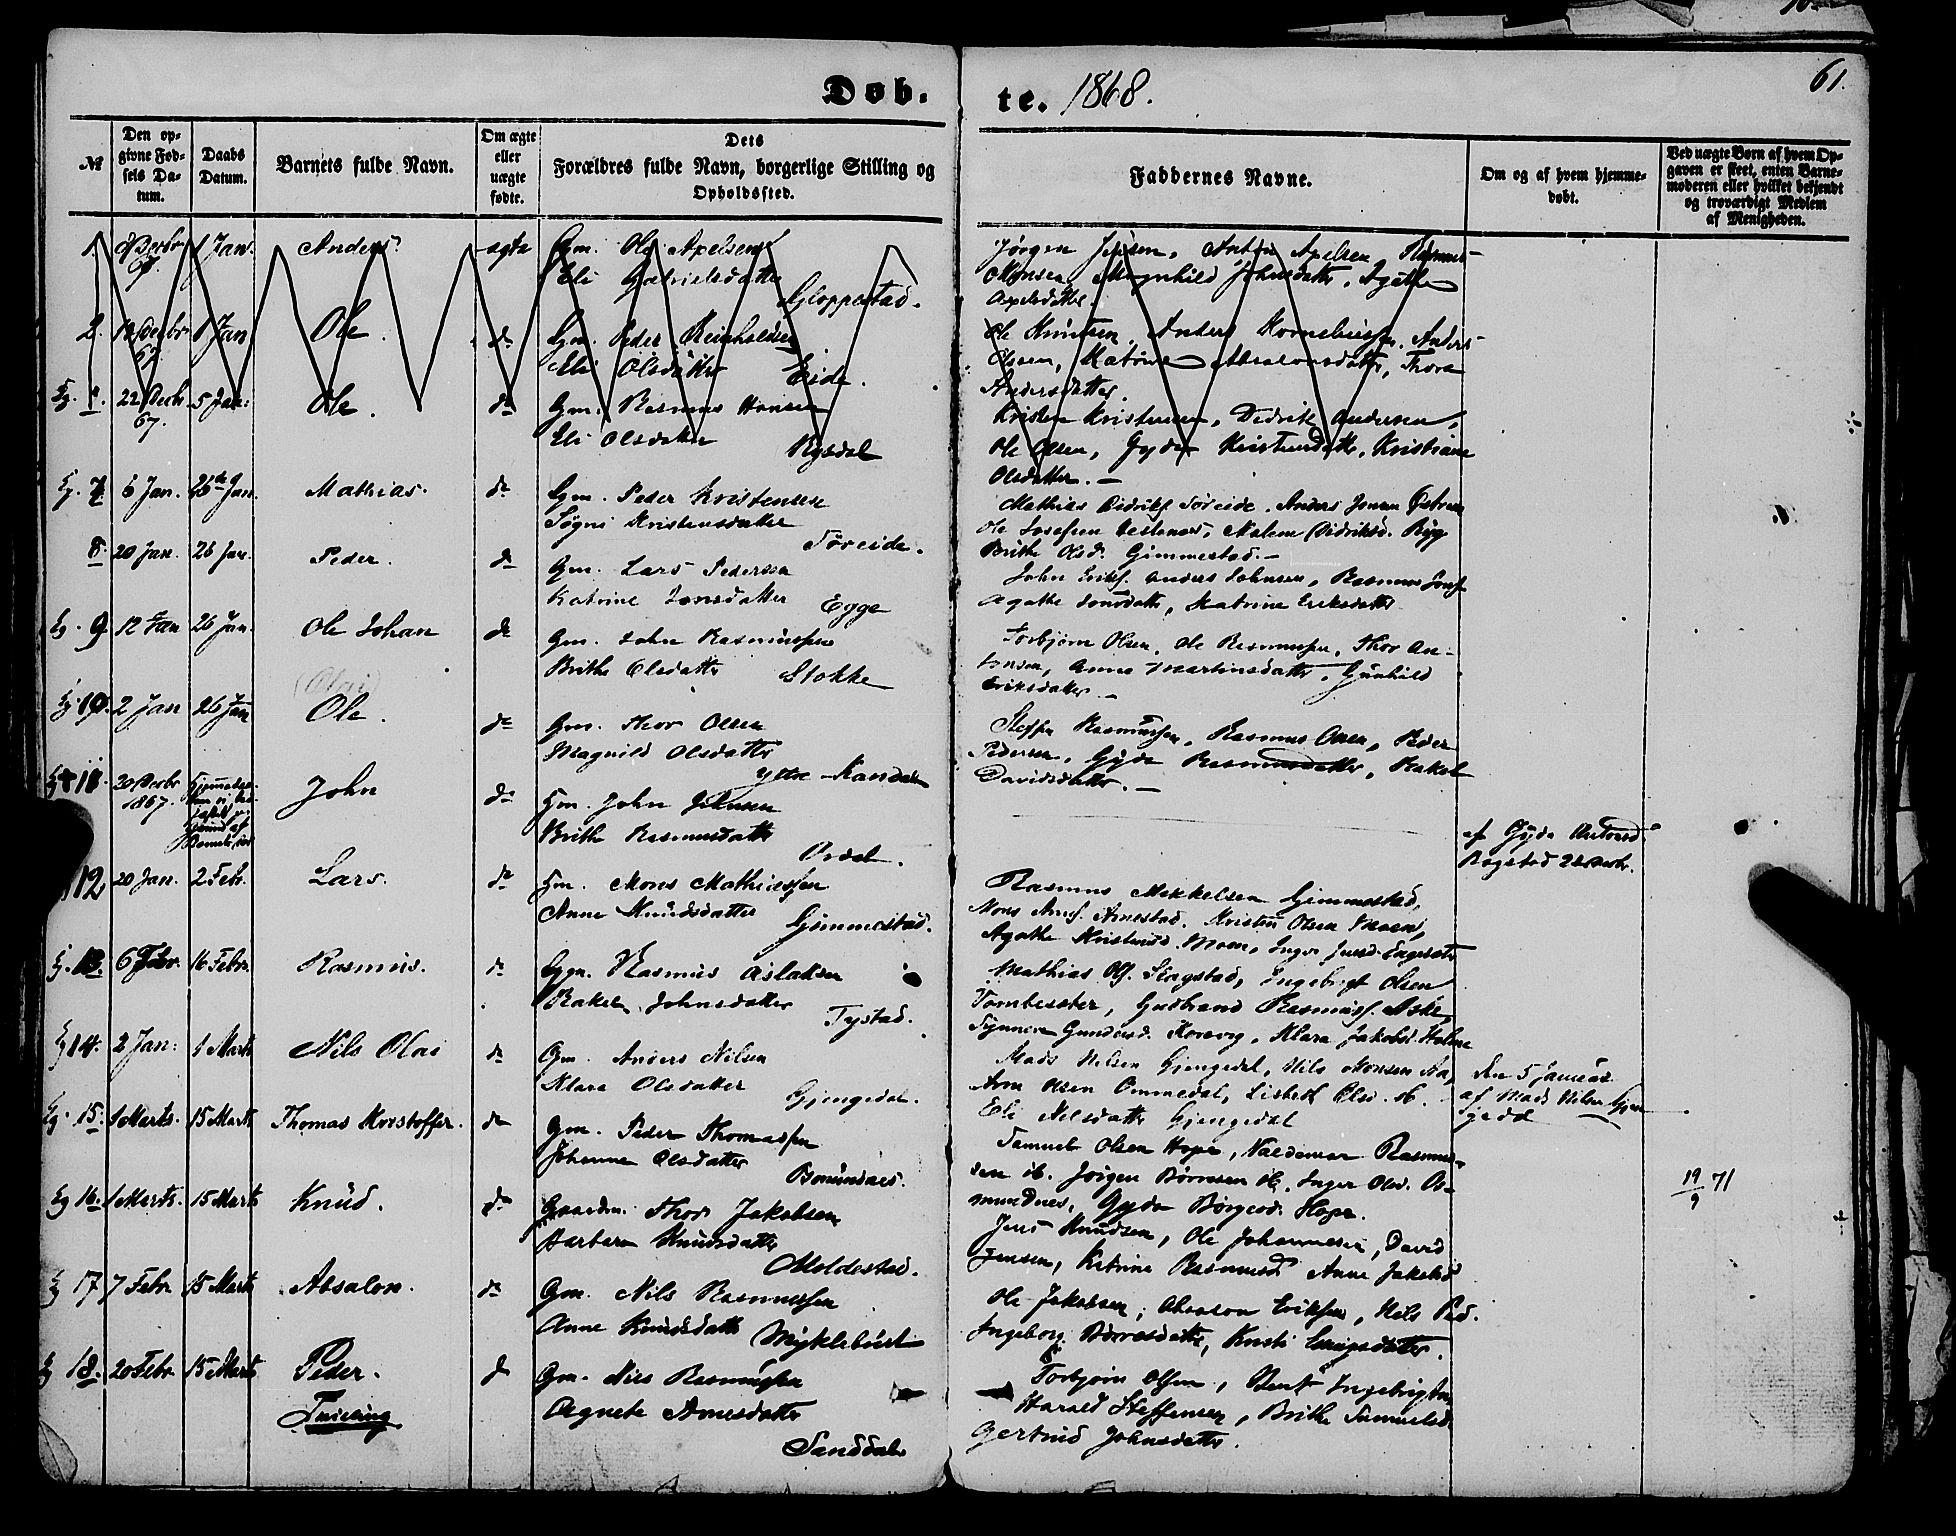 Døb-
te. 1868.
61.
№
Den op-
givne Fød-
sels Da-
tum.
Daabs
Datum.
Barnets fulde Navn.
Om ægte
eller
uægte
fødte.
Dets
Forældres fulde Navn, borgerlige Stilling og
Opholdssted.
Faddernes Navne.
Om og af hvem hjemme-
døbt.
Ved uægte Børn af hvem Op-
gaven er skeet, enten Barne-
moderen eller hvilket bekjendt
og troværdigt Medlem
af Menigheden.
1. Decbr 67. 1 Jan. Anders. ægte Gm. Ole Axelsen
Eli Gabrielsdatter
Gloppestad.
Jørgen Jensen, Anton Axelsen, Rasmus
Monsen, Magnhild Johnsdatter, Agathe
Axelsdatter.
2. Decbr 67 1 Jan Ole. do Gm. Peder Reinholdsen
Eli Olsdatter Eide.
Ole Knudsen, Anders Korneliussen, Anders
Olsen, Katrine Absalonsdatter, Thora
Andersdatter.
22 Decb 67. 5 Jan: Ole. do Gm. Rasmus Hansen
Eli Olsdatter Rysdal
Kristen Kristensen, Didrik Andersen,
Ole Olsen, Gyda Kristensdatter, Kristiane
Olsdatter. —
7. 6 Jan. 26de Jan. Mathias. do Gm. Peder Kristensen
Søgni Kristensdatter
Søreide.
Mathias Didriks. Søreide, Anders Jonsen
Ole Josefsen, Malene Didriksd. Ryg
Brithe Olsd. Gimmestad. —
8. 20 Jan. 26 Jan. Peder. do Gm. Lars Pedersen
Katrine Jonsdatter Egge
John Eriks. Anders Johnsen, Rasmus Jons.
Agathe Jonsdatter, Katrine Eriksdatter
9 12 Jan 26 Jan. Ole Johan do Gm. John Rasmussen
Brithe Olsdatter Stokke
Torbjørn Olsen, Ole Rasmussen, Thor An-
tonsen, Anna Martinsdatter, Gunhild
Eriksdatter. —
(Olai)
10. 2 Jan 26 Jan Ole. do Gm. Thor Olsen
Magnild Olsdatter
Ytre Kandal
Steffen Rasmussen, Rasmus Olsen, Peder
Pedersen, Gyda Rasmusdatter, Rakel
Davidsdatter. —
11. 20 Decbr 1867. John do Gm. John Johnsen
Brithe Rasmusdatter
Ordal.
af Gyda Antonsd.
Rogstad Decbr.
12 20 Jan. 2 Febr. Lars. do Gm. Mons Mathiassen
Anne Knudsdatter Gimmestad.
Rasmus Mikkelsen Gimmestad,
Mons Arnes. Arnestad, Kristen Olsen Moen,
Agathe Kristensd. Moen, Inger Jensd. Engesæter
13. 6 Febr. 16 Febr. Rasmus. do Gm. Rasmus Aslaksen
Rakel Johnsdatter
Tystad.
Mathias Ols. Skagstad, Ingebrigt Olsen
Tornbesæter, Gudbrand Rasmuss. Aske
Synneve Gundersd. Korsvog, Klara Jakobsd. Holme
14. 2 Jan: 1 Marts Nils Olai do Gm. Anders Nilsen
Klara Olsdatter
Gjengedal.
Mads Nilsen Gjengedal, Nils Monsen Aa,
Arne Olsen Ommedal, Lisbeth Olsd. ib.
Eli Nilsdatter Gjengedal
Den 5 Januar
af Mads Nilsen Gjen-
gedal
15. 1 Marts. 15 Marts Thomas Kristoffer. do Gm. Peder Thomassen
Johanne Olsdatter
Osmundnes.
Samuel Olsen Hope, Valdemar Rasmus-
sen ib. Jørgen Børresen ib. Inger Olsd. Os-
mundnes, Gyda Børresd. Hope.
19/9 71
16. 1 Marts. 15 Marts Knud. do Gaardm. Thor Jakobsen
Barbara Knudsdatter
Moldestad.
Jens Knudsen, Ole Johannesen, David
Jensen, Katrine Rasmusd. Anne Jakobsd
17 7 Febr 15 Marts Absalon. do Gm. Nils Rasmussen
Anne Knudsdatter Myklebust
Ole Jakobsen, Absalon Eriksen, Nils Ped.
Ingeborg Børresdatter, Kristi
18. 20 Febr. 15 Marts Peder. d Gm. Nils Rasmussen
Tvilling
Agnete Arnesdatter
Sanddal
Torbjørn Olsen, Bent Ingebrigtsen
Harald Steffensen, Brithe Samuelsd
Gertrud Johnsdatter.